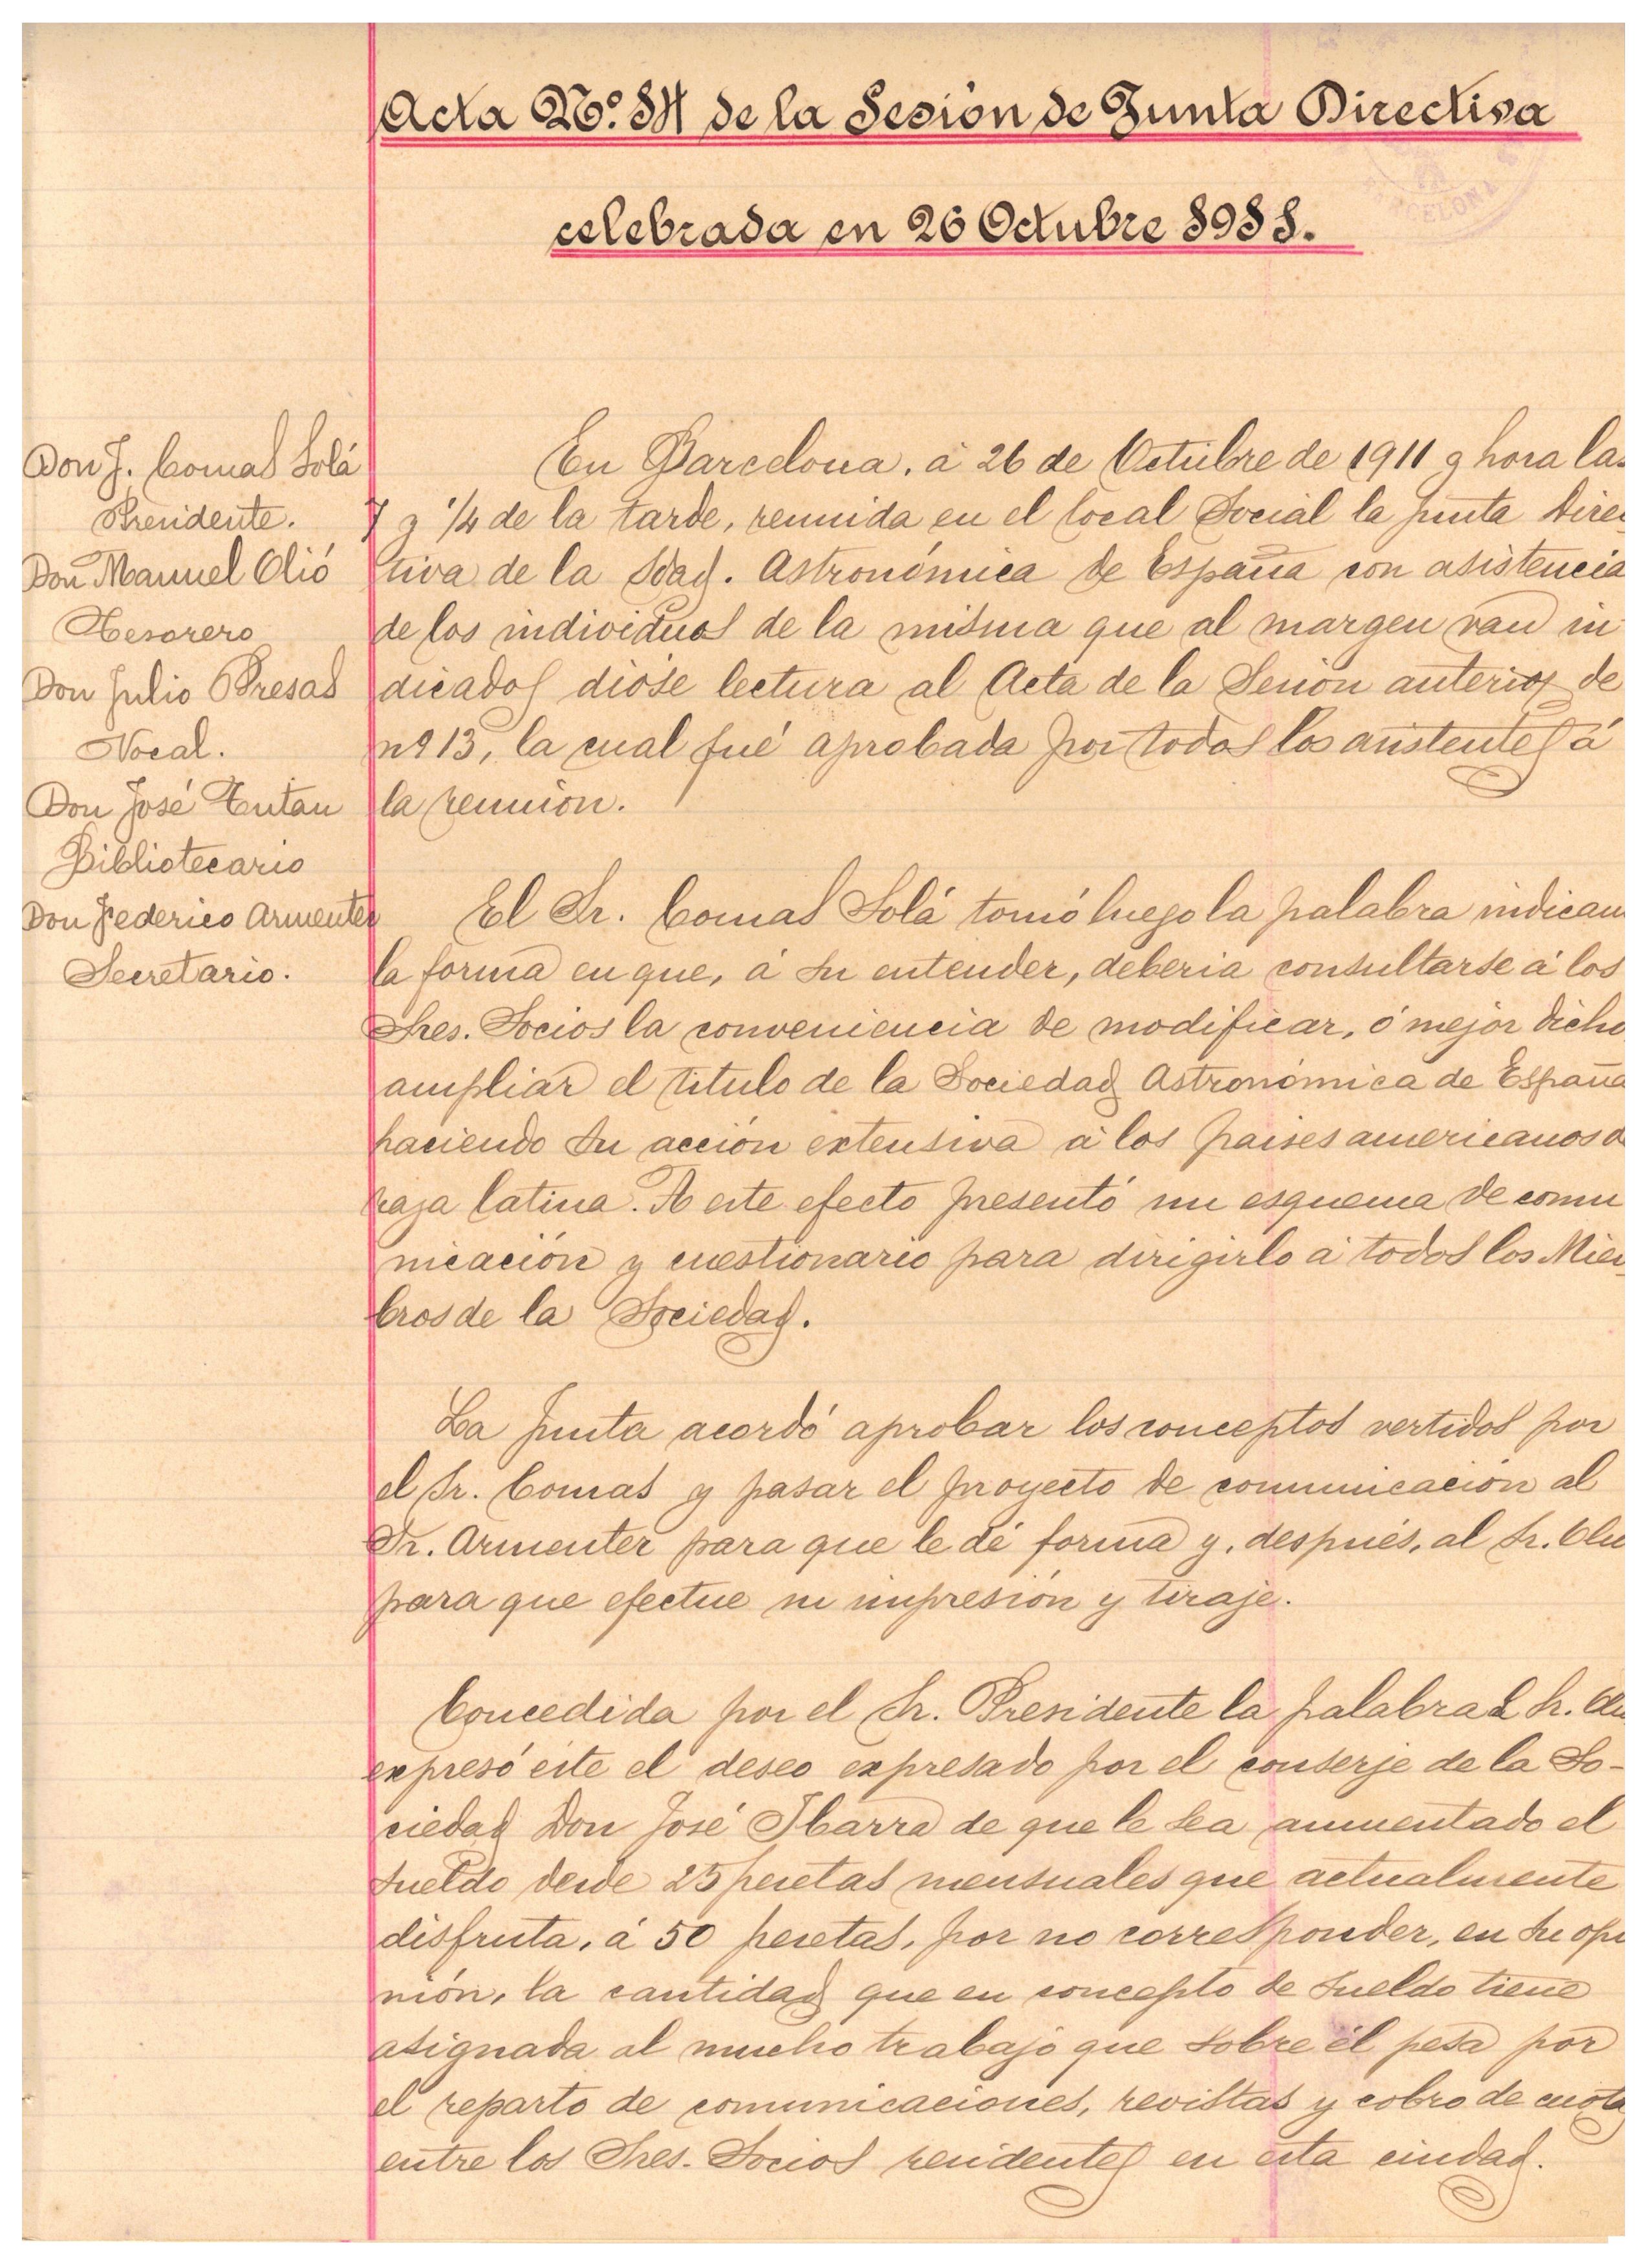 Acta Nº. 14 de la Sesión de Junta Directiva
celebrada en 26 Octubre 1911.
Don J. Comas Solá
Presidente.
Don Manuel Clió
Tesorero
Don Julio Presas
Vocal.
Don José Tutau
Bibliotecario
Don Federico Armenter
Secretario.
En Barcelona, á 26 de Octubre de 1911 y hora las
7 y 1/4 de la tarde, reunida en el local Social la Junta Direc
tiva de la Sdad. Astronómica de España con asistencia
de los individuos de la misma que al margen van in
dicados dióse lectura al Acta de la Sesión anterior de
nº 13, la cual fué aprobada por todos los asistentes á
la reunión.
El Sr. Comas Solá tomó luego la palabra indican
la forma en que, á su entender, deberia consultarse á los
Sres. Socios la conveniencia de modificar, ó mejor dicho
ampliar el titulo de la Sociedad Astronómica de España
haciendo su acción extensiva á los paises americanos d
raza latina. A este efecto presentó un esquema de comu
nicación y cuestionario para dirigirlo á todos los Miem
bros de la Sociedad.
La Junta acordó aprobar los conceptos vertidos por
el Sr. Comas y pasar el proyecto de comunicación al
Sr. Armenter para que le dé forma y, después, al Sr.
para que efectue su impresión y tiraje.
Concedida por el Sr. Presidente la palabra al Sr.
expresó éste el deseo expresado por el conserje de la So-
ciedad Don José Ibarra de que le sea aumentado el
sueldo desde 25 pesetas mensuales que actualmente
disfruta, á 50 pesetas, por no corresponder, en su opi
nión, la cantidad que en concepto de sueldo tiene
asignada al mucho trabajo que sobre él pesa por
el reparto de comunicaciones, revistas y cobro de cuotas
entre los Sres. Socios residentes en esta ciudad.